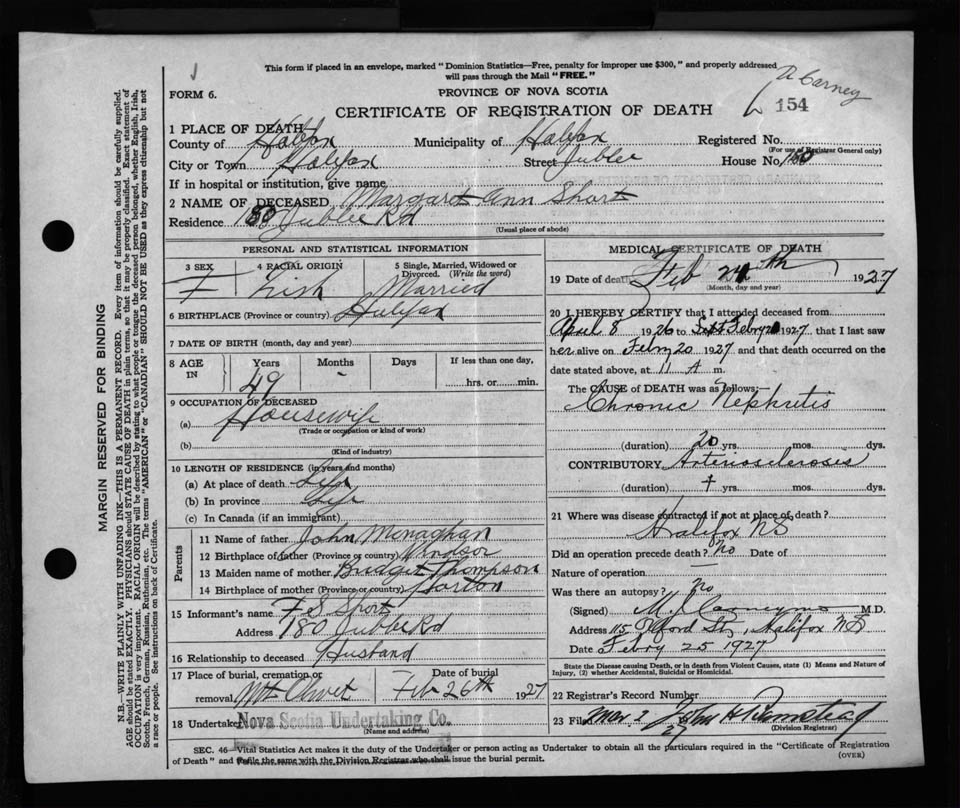 This form if placed in an envelope, marked "Dominion Statistics—Free, penalty for improper use $300," and properly addressed
will pass through the Mail "FREE."
FORM 6.
PROVINCE OF NOVA SCOTIA
CERTIFICATE OF REGISTRATION OF DEATH
Carney
154
MARGIN RESERVED FOR BINDING
N.B.—WRITE PLAINLY WITH UNFADING INK—THIS IS A PERMANENT RECORD. Every item of information should be carefully supplied.
AGE should be stated EXACTLY. PHYSICIANS should STATE CAUSE OF DEATH in plain terms, so that it may be properly classified. Exact statement of
OCCUPATION is very important. RACIAL ORIGIN will be described by stating to what people or tongue the deceased person belonged, whether English, Irish,
Scotch, French, German, Russian, Ruthenian, etc. The terms "AMERICAN" or "CANADIAN" SHOULD NOT BE USED as they express citizenship but not
a race or people. See instructions on back of Certificate.
1 PLACE OF DEATH
County of Halifax Municipality of Halifax Registered No.
(For use of Registrar General only)
City or Town Halifax Street Jubilee House No. 180
If in hospital or institution, give name
2 NAME OF DECEASED Margaret Ann Short
Residence 180 Jubilee Rd
(Usual place of abode)
PERSONAL AND STATISTICAL INFORMATION
3 SEX F
4 RACIAL ORIGIN Irish
5 Single, Married, Widowed or Divorced. (Write the word) Married
6 BIRTHPLACE (Province or country) Halifax
7 DATE OF BIRTH (month, day and year)
8 AGE IN Years 49 Months - Days If less than one day, hrs. or min.
9 OCCUPATION OF DECEASED
(a) Housewife
(Trade or occupation or kind of work)
(b)
(Kind of industry)
10 LENGTH OF RESIDENCE (in years and months)
(a) At place of death Life
(b) In province Life
(c) In Canada (if an immigrant)
Parents
11 Name of father John Monaghan
12 Birthplace of father (Province or country) Windsor
13 Maiden name of mother Bridget Thompson
14 Birthplace of mother (Province or country)
15 Informant's name F S Short
Address 180 Jubilee Rd
16 Relationship to deceased Husband
17 Place of burial, cremation or removal Mt Olivet Date of burial Feb 26th 1927
18 Undertaker Nova Scotia Undertaking Co.
(Name and address)
MEDICAL CERTIFICATE OF DEATH
19 Date of death Feb 24th 1927
(Month, day and year)
20 I HEREBY CERTIFY that I attended deceased from
April 8 1926 to Febry 1927, that I last saw
her alive on Febry 20 1927 and that death occurred on the
date stated above, at 11 A m.
The CAUSE of DEATH was as follows:—
Chronic Nephritis
(duration) 20 yrs. mos. dys.
CONTRIBUTORY Arteriosclerosis
(duration) yrs. mos. dys.
21 Where was disease contracted if not at place of death?
Halifax NS
Did an operation precede death? No Date of
Nature of operation —
Was there an autopsy? No
(Signed) M.D.
Address 115 Halifax NS
Date Febry 25 1927
State the Disease causing Death, or in death from Violent Causes, state (1) Means and Nature
of Injury, (2) whether Accidental, Suicidal or Homicidal.
22 Registrar's Record Number
23 Filed Mar 2 27 John H
(Division Registrar)
SEC. 46—Vital Statistics Act makes it the duty of the Undertaker or person acting as Undertaker to obtain all the particulars required in the "Certificate of Registration
of Death" and to file the same with the Division Registrar who shall issue the burial permit.
(OVER)